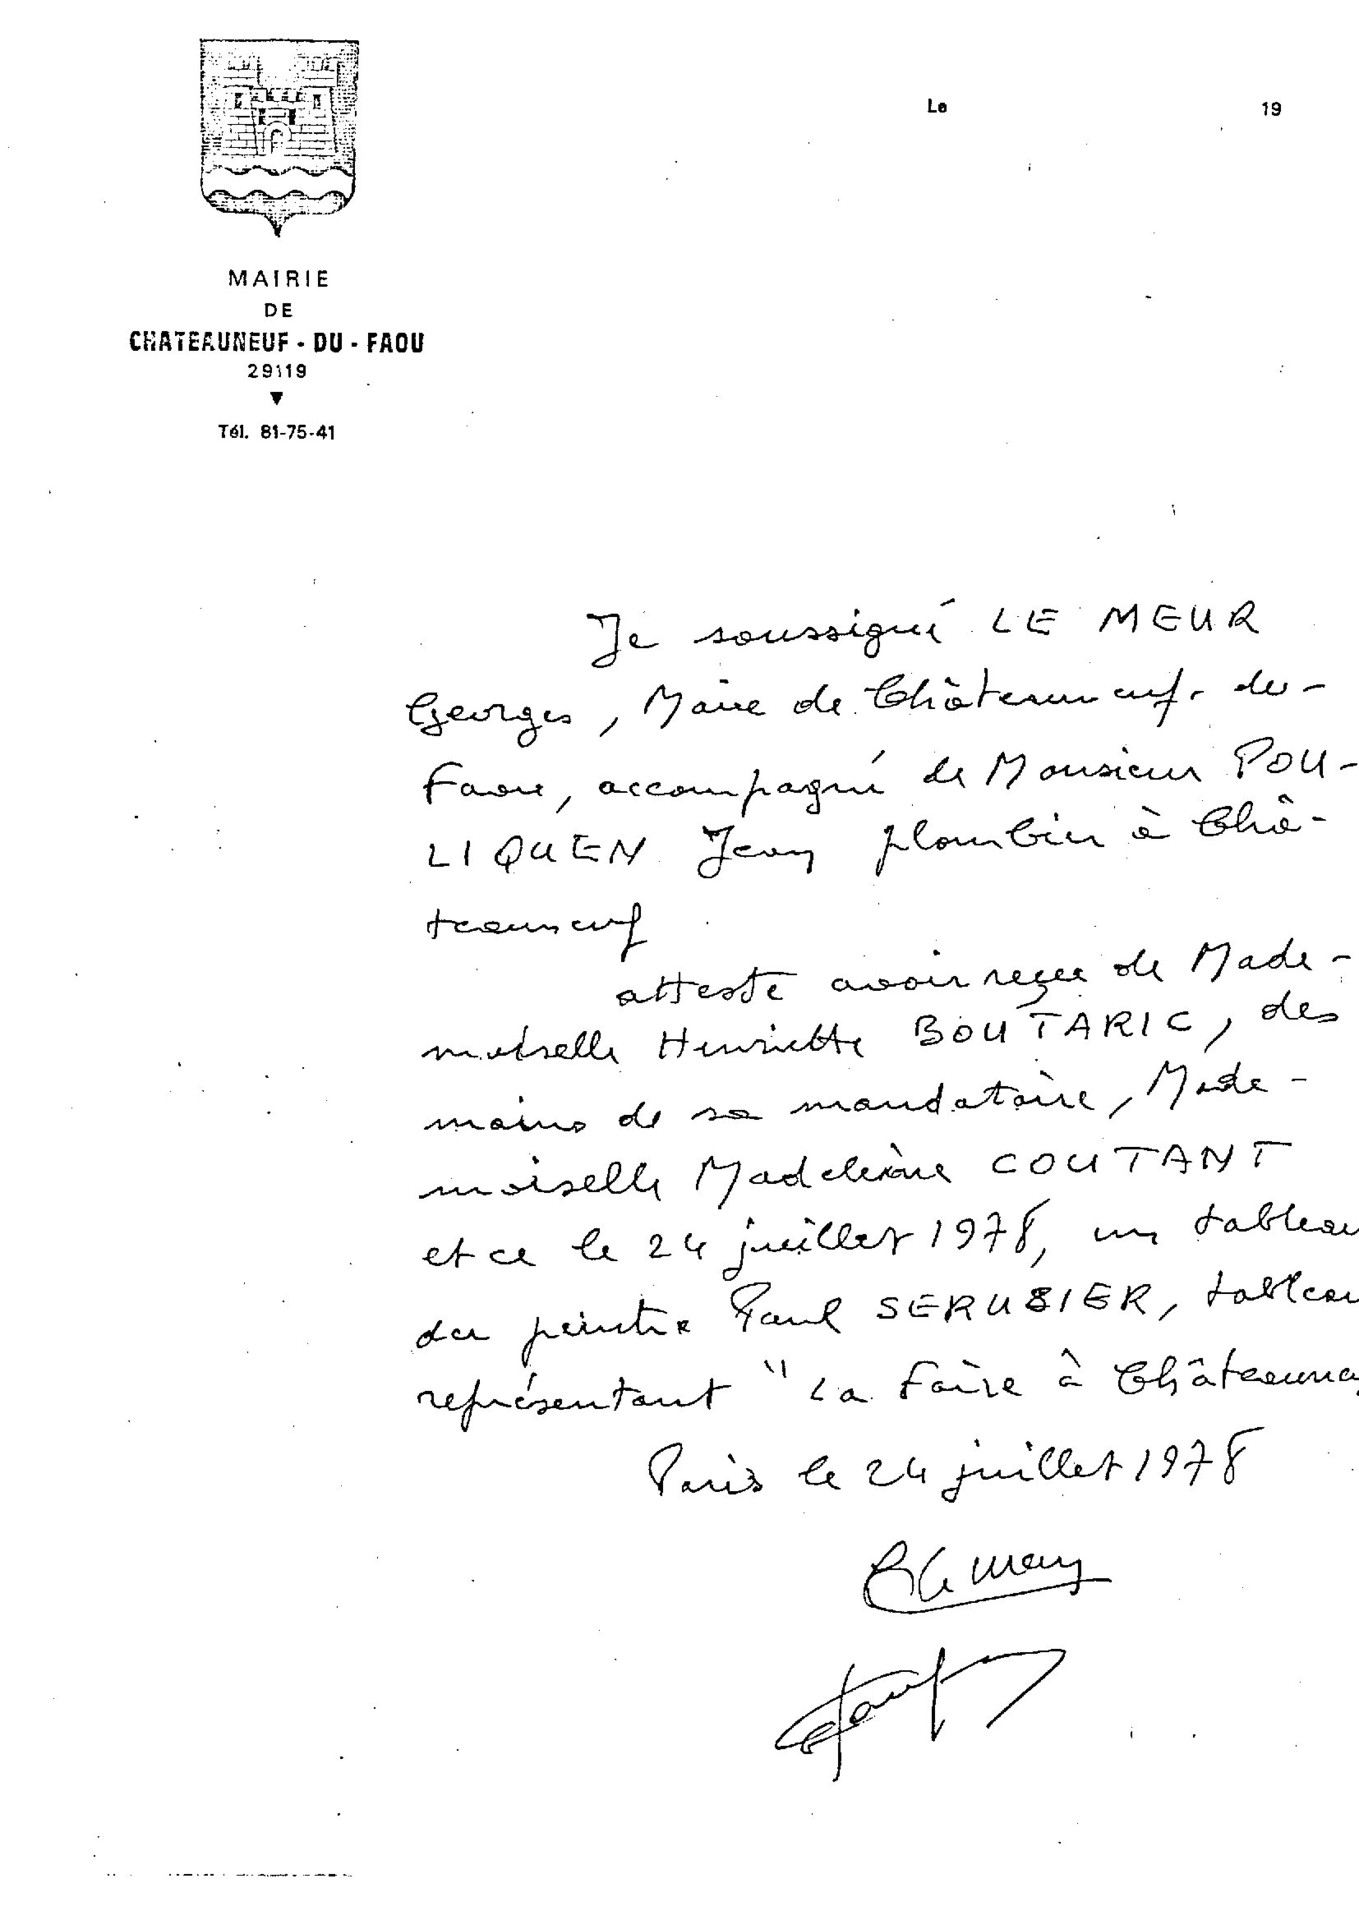 Le 19
MAIRIE
DE
CHATEAUNEUF - DU - FAOU
29119
Tél. 81-75-41
Je soussigné LE MEUR
Georges, Maire de Châteauneuf-du-
Faou, accompagné de Monsieur POU-
LIQUEN Jean plombier à Châ-
teauneuf
atteste avoir reçu de Made-
moiselle Henriette BOUTARIC, des
mains de sa mandataire, Made-
moiselle Madeleine COUTANT
et ce le 24 juillet 1978, un tableau
du peintre Paul SERUSIER, tableau
représentant "La Foire à Châteauneu
Paris le 24 juillet 1978